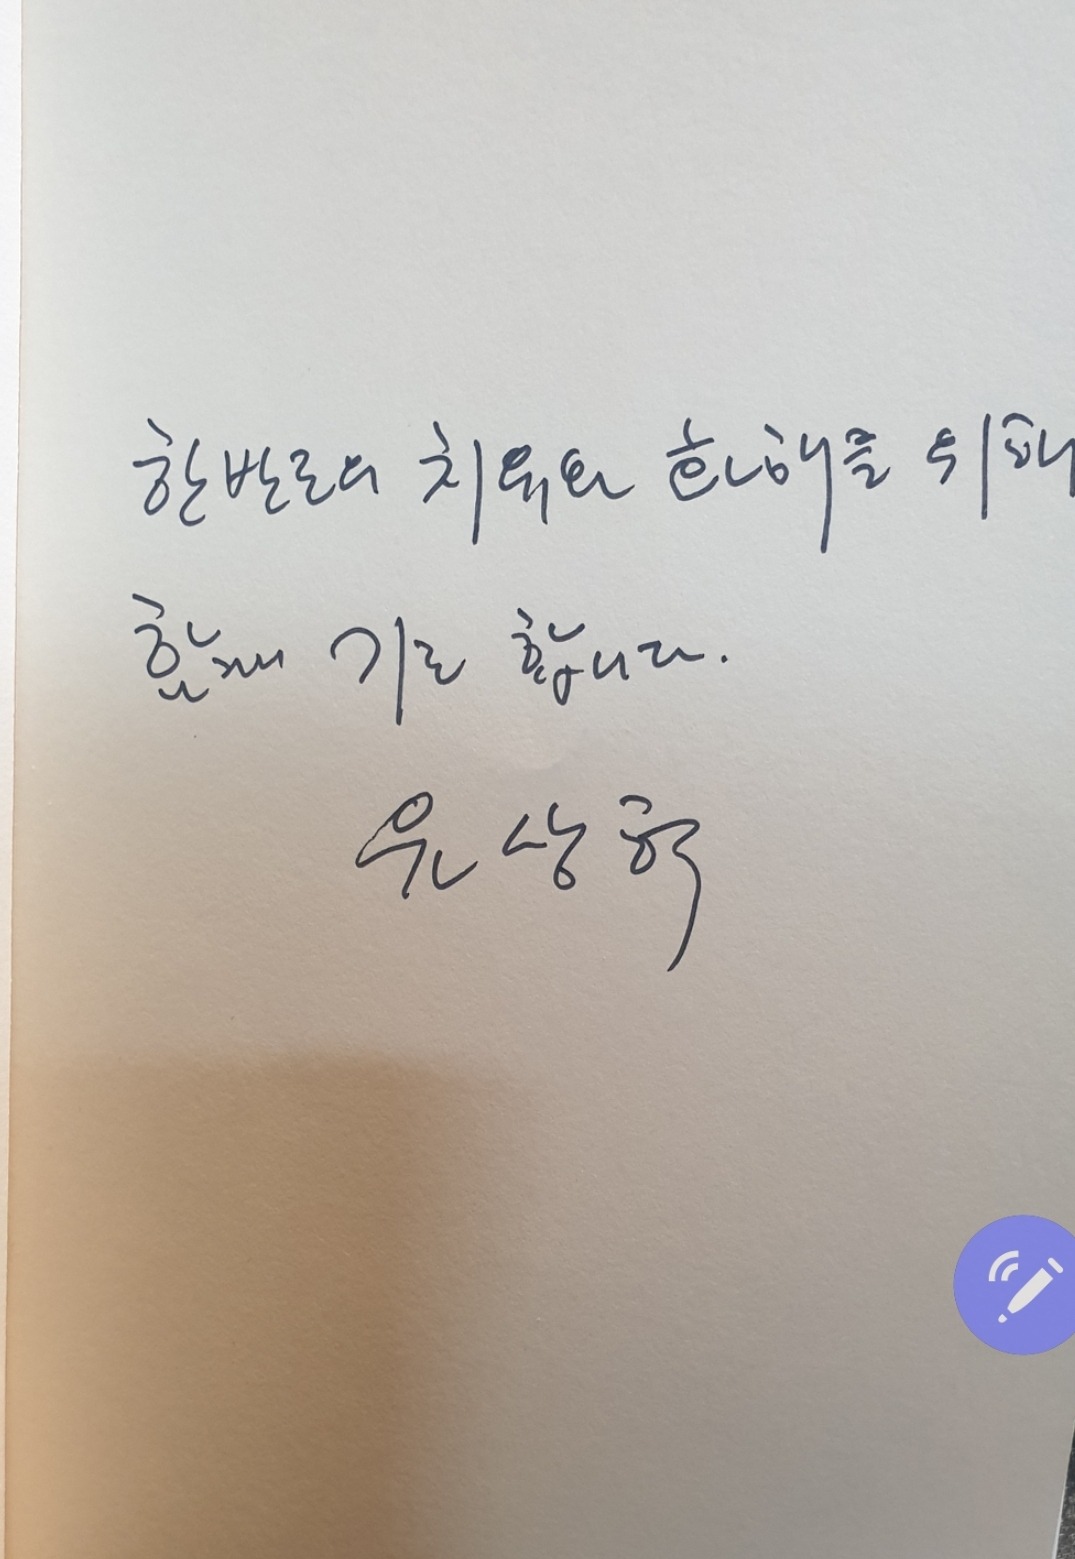 한반도의 치유와 화해를 위해
함께 기도 합니다.
윤상혁